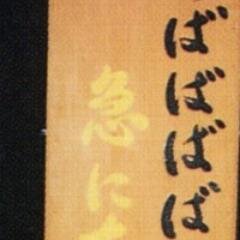 ばばばば
急に